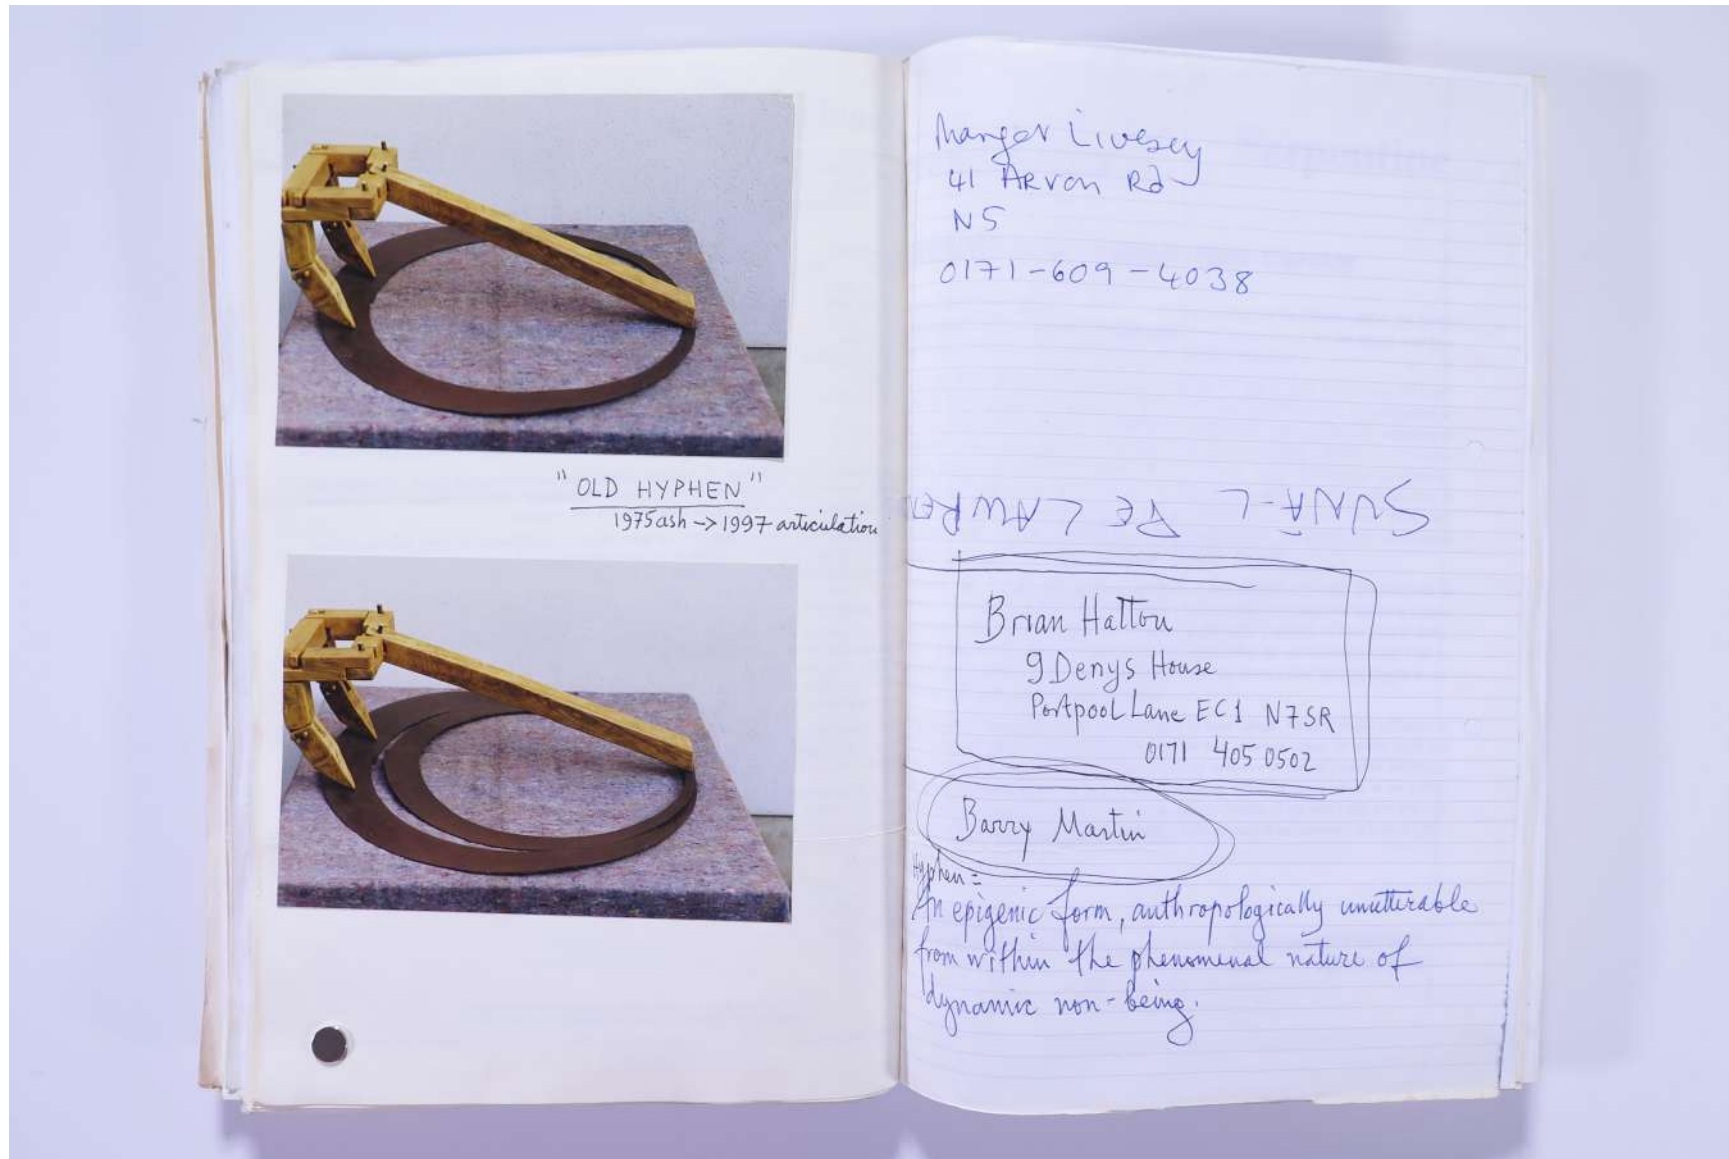 "OLD HYPHEN"
1975 ash -> 1997 articulation
Margot Livesey
41 Arvon Rd
N5
0171-609-4038
Brian Hatton
9 Denys House
Portpool Lane EC1 N7SR
0171 405 0502
Barry Martin
Hyphen =
An epigenic form, anthropologically unutterable
from within the phenomenal nature of
dynamic non-being.